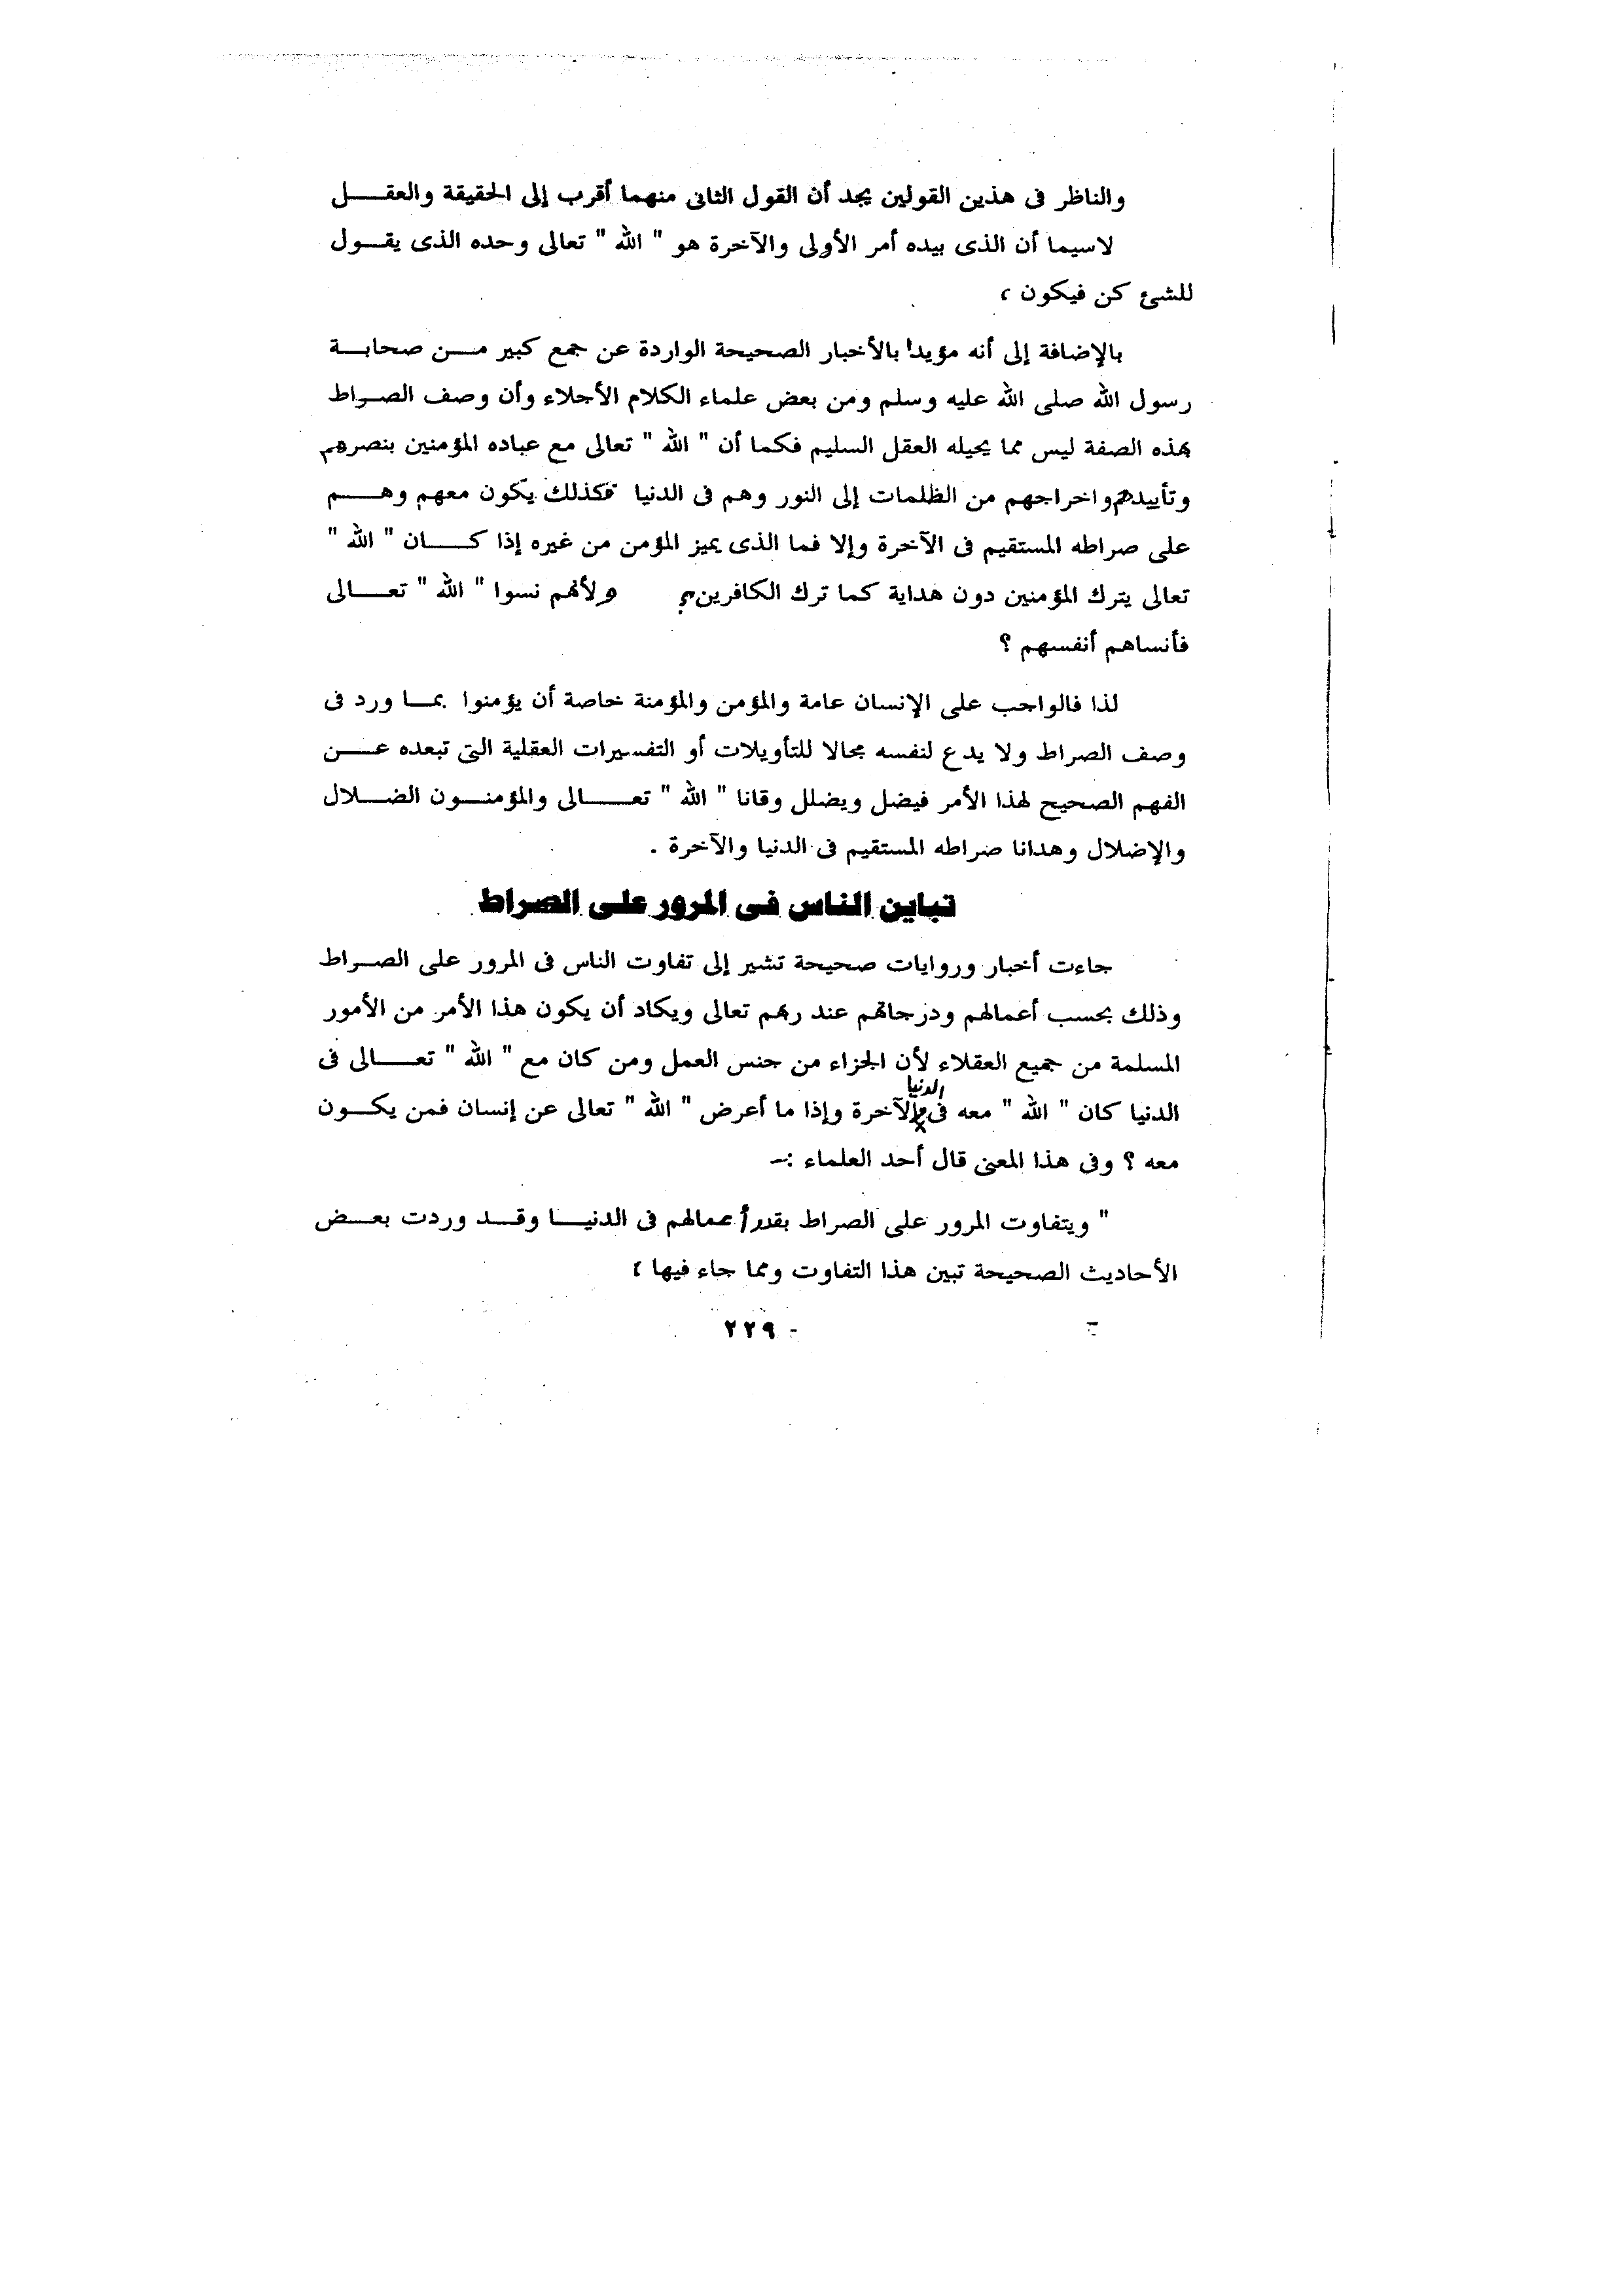 والناظر فى هذين القولين يجد أن القول الثانى منهما أقرب إلى الحقيقة والعقـــل
لاسيما أن الذى بيده أمر الأولى والآخرة هو " الله " تعالى وحده الذى يقـول
للشئ كن فيكون ،
بالإضافة إلى أنه مؤيدا بالأخبار الصحيحة الواردة عن جمع كبير مــن صحابــة
رسول الله صلى الله عليه وسلم ومن بعض علماء الكلام الأجلاء وأن وصف الصـراط
بهذه الصفة ليس مما يحيله العقل السليم فكما أن " الله " تعالى مع عباده المؤمنين بنصرهم
وتأييدهم واخراجهم من الظلمات إلى النور وهم فى الدنيا فكذلك يكون معهم وهــم
على صراطه المستقيم فى الآخرة وإلا فما الذى يميز المؤمن من غيره إذا كـــان " الله "
تعالى يترك المؤمنين دون هداية كما ترك الكافرين ولأنهم نسوا " الله " تعــالى
فأنساهم أنفسهم ؟
لذا فالواجب على الإنسان عامة والمؤمن والمؤمنة خاصة أن يؤمنوا بمـا ورد فى
وصف الصراط ولا يدع لنفسه مجالا للتأويلات أو التفسيرات العقلية التى تبعده عــن
الفهم الصحيح لهذا الأمر فيضل ويضلل وقانا " الله " تعـــالى والمؤمنــون الضــلال
والإضلال وهدانا صراطه المستقيم فى الدنيا والآخرة .
تباين الناس فى المرور على الصراط
جاءت أخبار وروايات صحيحة تشير إلى تفاوت الناس فى المرور على الصـراط
وذلك بحسب أعمالهم ودرجاتهم عند ربهم تعالى ويكاد أن يكون هذا الأمر من الأمور
المسلمة من جميع العقلاء لأن الجزاء من جنس العمل ومن كان مع " الله " تعــالى فى
الدنيا
الدنيا كان " الله " معه فى والآخرة وإذا ما أعرض " الله " تعالى عن إنسان فمن يكــون
معه ؟ وفى هذا المعنى قال أحد العلماء :-
" ويتفاوت المرور على الصراط بقدر أعمالهم فى الدنيــا وقــد وردت بعــض
الأحاديث الصحيحة تبين هذا التفاوت ومما جاء فيها ،
- ٢٢٩